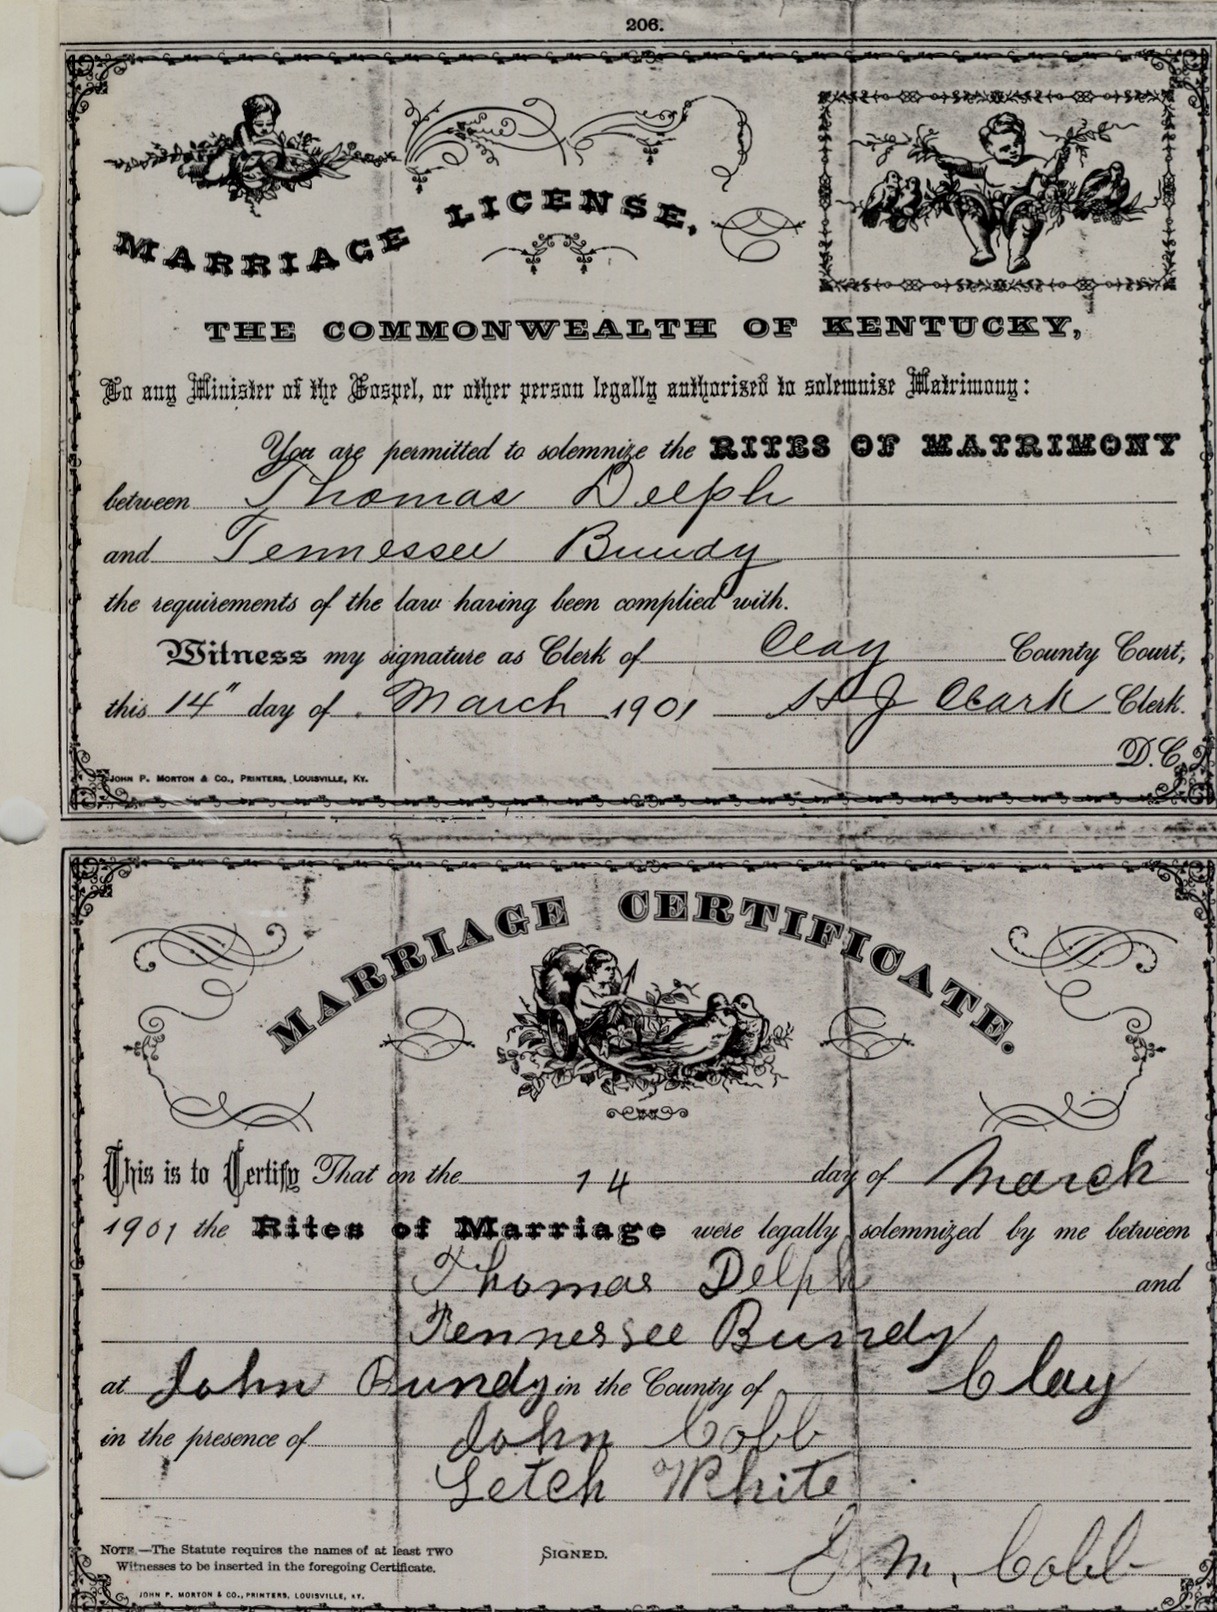 206.
MARRIAGE LICENSE,
THE COMMONWEALTH OF KENTUCKY,
To any Minister of the Gospel, or other person legally authorized to solemnize Matrimony:
You are permitted to solemnize the RITES OF MATRIMONY
between Thomas Delph
and Tennessee Bundy
the requirements of the law having been complied with.
Witness my signature as Clerk of Clay County Court,
this 14" day of March 1901 J Clark Clerk.
D.C.
JOHN P. MORTON & CO., PRINTERS, LOUISVILLE, KY.
MARRIAGE CERTIFICATE.
This is to Certify That on the 14 day of March
1901 the Rites of Marriage were legally solemnized by me between
Thomas Delph and
Tennessee Bundy
at John Bundy in the County of Clay
in the presence of John Cobb
Letch White
NOTE.—The Statute requires the names of at least TWO
Witnesses to be inserted in the foregoing Certificate.
SIGNED.
M. Cobb
JOHN P. MORTON & CO., PRINTERS, LOUISVILLE, KY.